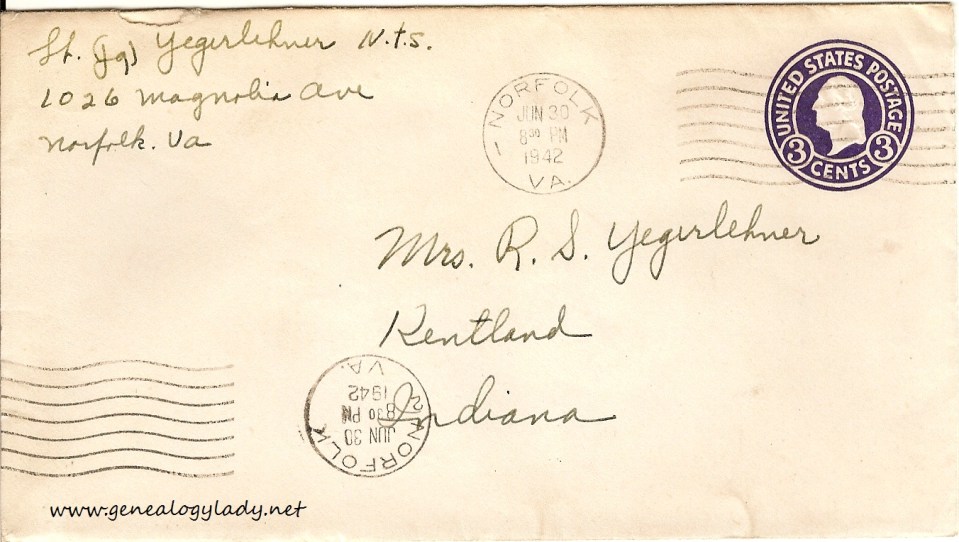 Lt. (jg) Yegerlehner N.t.s.
1026 Magnolia Ave
Norfolk. Va
NORFOLK
1
JUN 30
8 30 PM
1942
VA.
UNITED STATES POSTAGE
3 CENTS 3
Mrs. R. S. Yegerlehner
Kentland
Indiana
NORFOLK
2
JUN 30
8 30 PM
1942
VA.
www.genealogylady.net